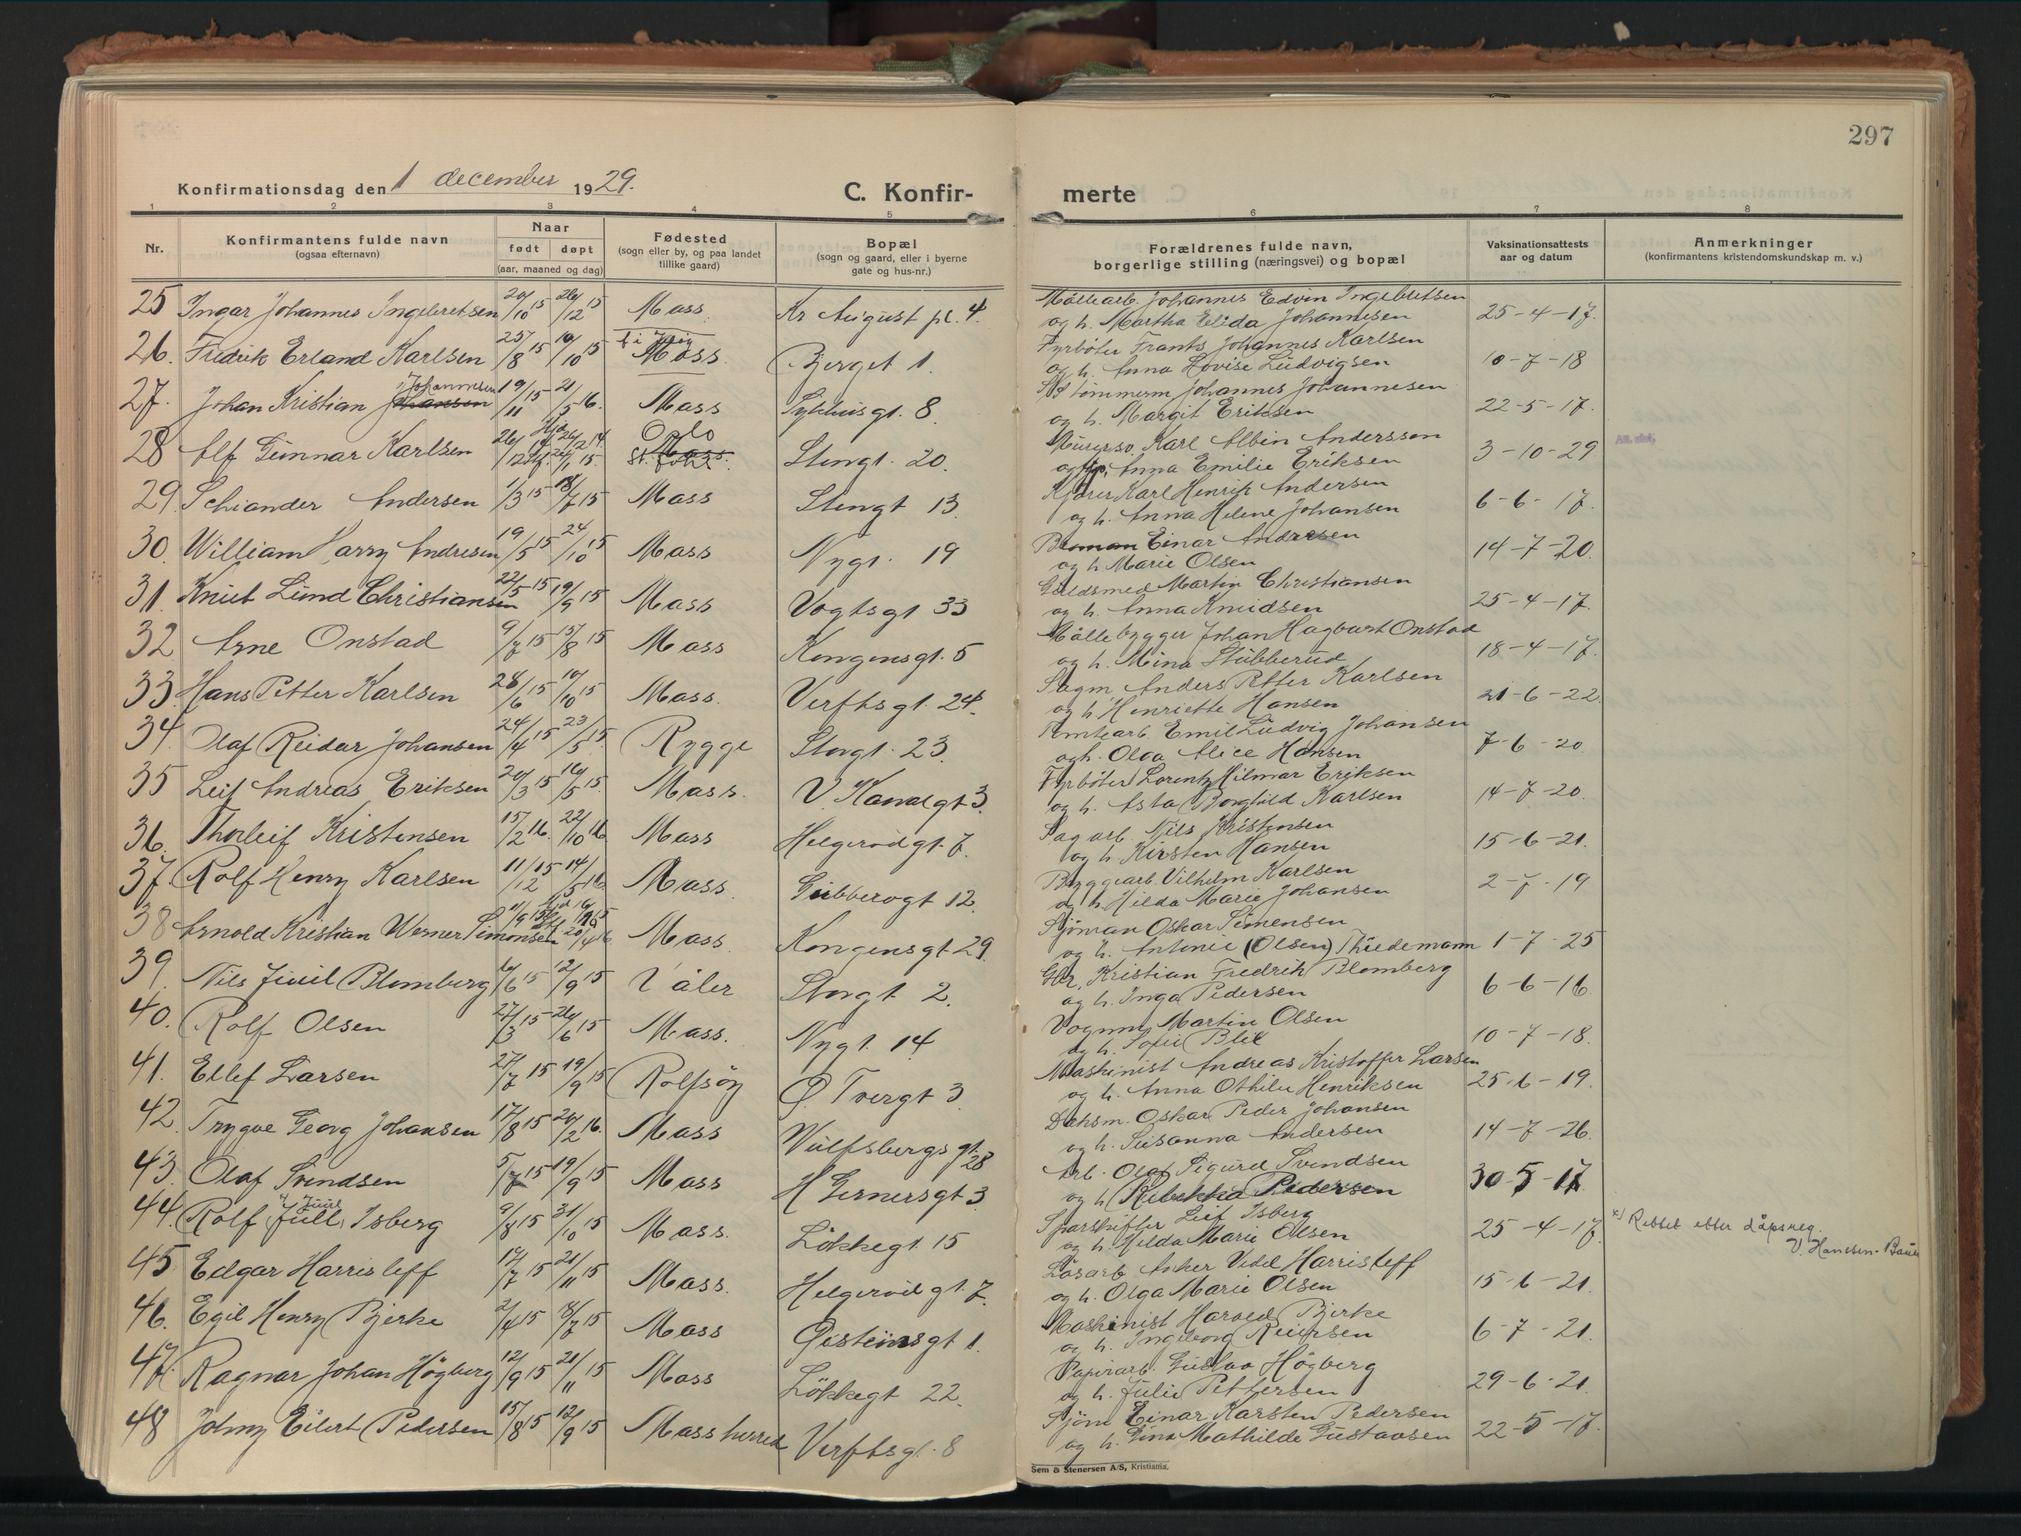 297
Konfirmationsdag den 1 december 1929.
C. Konfirmerte
1 2 3 4 5 6 7 8
Nr.
Konfirmantens fulde navn
(ogsaa efternavn)
Naar
født døpt
(aar, maaned og dag)
Fødested
(sogn eller by, og paa landet
tillike gaard)
Bopæl
(sogn og gaard, eller i byerne
gate og hus-nr.)
Forældrenes fulde navn,
borgerlige stilling (næringsvei) og bopæl
Vaksinationsattests
aar og datum
Anmerkninger
(konfirmantens kristendomskundskap m. v.)
25 Ingar Johannes Ingebretsen 20/10 15 26/12 15 Moss. Kr August pl. 4. Møllearb. Johannes Edvin Ingebretsen
og h. Martha Elida Johannesen 25-4-17.
26. Fredrik Erland Karlsen 25/8 15 10/10 15 Moss. Bjerget 1. Fyrbøter Frants Johannes Karlsen
og h. Anna Lovise Ludvigsen 10-7-18
27. Johan Kristian Johansen Johannesen 19/11 15 21/5 16. Moss Sykhusgt. 8. Johannes Johannesen
og h. Margit Eriksen 22-5-17.
28 Alf Gunnar Karlsen Oslo Moss. Stengt. 20. Murersv. Karl Albin Andersson
Anna Emilie Eriksen 3-10-29
29. Schiander Andersen 1/3 15 18/7 15 Moss Stengt 13. Kjører Karl Henrik Andersen
og h. Anna Helene Johansen 6-6-17.
30. William Harry Andresen 19/5 15 24/10 15 Moss Nygt. 19 Einar Andresen
og h Marie Olsen 14-7-20.
31. Knut Lund Christiansen 22/5 15 19/9 15 Moss Vogtsgt 33 Guldsmed Martin Christiansen
og h. Anna Knudsen 25-4-17.
32 Arne Onstad 9/7 15 15/8 15 Moss Kongensgt. 5 Møllebygger Johan Hagbart Onstad
og h. Mina Stubberud 18-4-17.
33. Hans Petter Karlsen 28/6 15 10/10 15 Moss. Verftsgt. 24. Sagm. Anders Petter Karlsen
og h. Henriette Hansen 21-6-22.
34. Olaf Reidar Johansen 24/4 15 23/5 15. Rygge Storgt. 23. Tomtearb. Emil Ludvig Johansen
og h. Olga Alice Hansen 7-6-20
35 Leif Andreas Eriksen 20/3 15 16/5 15. Moss. V. Kanalgt 3. Fyrbøter Lorentz Hilmar Eriksen
og h. Asta Borghild Karlsen 14-7-20.
36. Thorleif Kristensen 15/2 16. 22/10 16 Moss Helgerødgt. 7. Sagarb. Nils Kristensen
og h. Kirsten Hansen 15-6-21.
37. Rolf Henry Karlsen 11/12 15 14/5 16 Moss. Gubberogt 12. Byggearb. Vilhelm Karlsen
og h. Hilda Marie Johansen 2-7-19
38 Arnold Kristian Werner Simonsen Moss. Kongensgt. 29. Sjøman Oskar Simensen
og h. Antonie (Olsen) Thiedemann 1-7-25
39. Nils Juul Blomberg 10/6 15 12/9 15 Våler Storgt 2. Kristian Fredrik Blomberg
og h. Inga Pedersen 6-6-16
40. Rolf Olsen 27/3 15 26/6 15 Moss. Nygt. 14. Vognm. Martin Olsen
og h. Sofie Blix 10-7-18.
41. Ellef Larsen 27/7 15 19/9 15 Rolfsøy Ø. Tvergt 3. Maskinist Andreas Kristoffer Larsen
og h. Anna Othilie Henriksen 25-6-19.
42. Trygve Georg Johansen 17/8 15 20/2 16. Moss Wulfsbergsgt. 28 Oskar Peder Johansen
og h. Susanna Andersen 14-7-26.
43. Olaf Svendsen 5/7 15 19/9 15 Moss H Gernersgt 3. Arb. Olaf Sigurd Svendsen
og h. Rebekka Pedersen 30-5-17.
44. Rolf Juell Juul Isberg 9/8 15 31/10 15 Moss. Løkkegt 15 Sporskifter Leif Isberg
og h. Hilda Marie Olsen 25-4-17. x) Rettet etter dåpsreg.
V. Hanssen-Bauer
45 Edgar Harrisleff 17/7 15 21/11 15 Moss. Helgerødgt. 7. Løsarb Anker Vedel Harrisleff
og h. Olga Marie Olsen 15-6-21.
46. Egil Henry Bjerke 2/4 15 18/7 15 Moss Øisteinsgt 1. Maskinist Harald Bjerke
og h. Ingeborg Reiersen 6-7-21.
47. Ragnar Johan Högberg 12/9 15 21/11 15 Moss Løkkegt 22. Papirarb. Gustav Högberg
og h. Julie Pettersen 29-6-21
48 Johny Eilert Pedersen 15/8 15 12/9 15 Moss herred Verftsgt. 8 Sjøm Einar Karsten Pedersen
og h. Gina Mathilde Gustavsen 22-5-17.
Sem & Stenersen A/S, Kristiania.